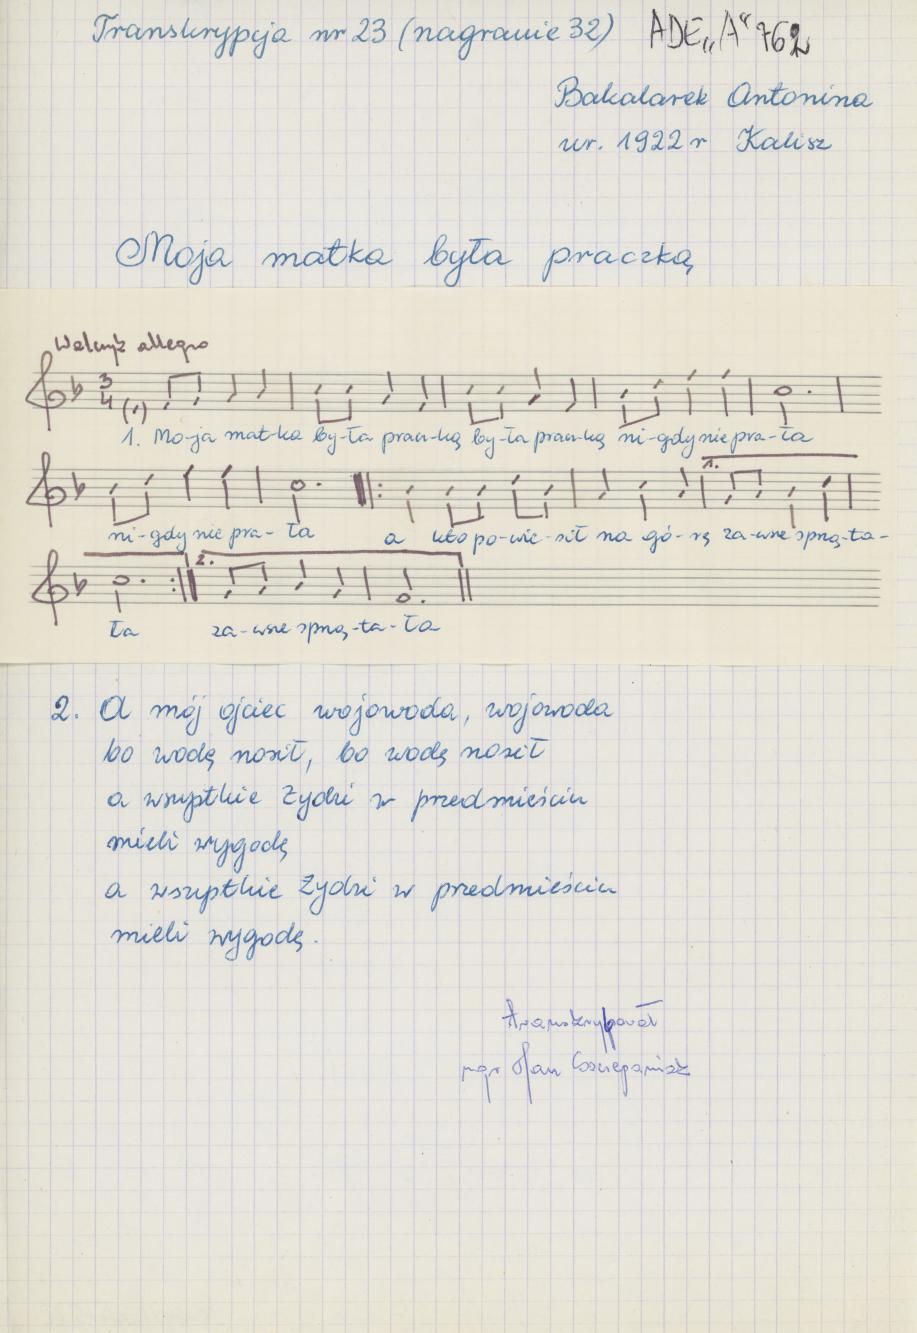 Transkrypcja nr 23 (nagranie 32) ADE„A“ 762
Bakalarek Antonina
ur. 1922 r Kalisz
Moja matka była praczką
Walczyk allegro
1. Mo-ja mat-ka by-ła pracz-ką by-ła pracz-ką ni-gdy nie pra-ła
1.
ni-gdy nie pra-ła a kto po-wie-sił na gó-rę za-wsze sprzą-ta-
2.
ła za-wsze sprzą-ta-ła
2. A mój ojciec wojowoda, wojowoda
bo wodę nosił, bo wodę nosił
a wszystkie Żydzi w przedmieściu
mieli wygodę
a wszystkie Żydzi w przedmieściu
mieli wygodę.
transkrybował
mgr Jan